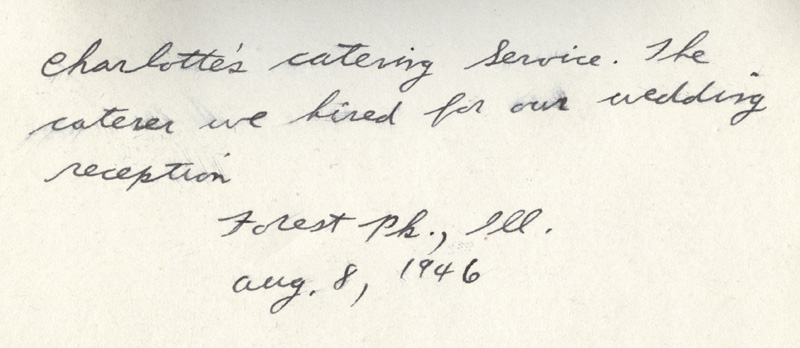 Charlotte's catering Service. The
caterer we hired for our wedding
reception
Forest Pk., Ill.
Aug. 8, 1946